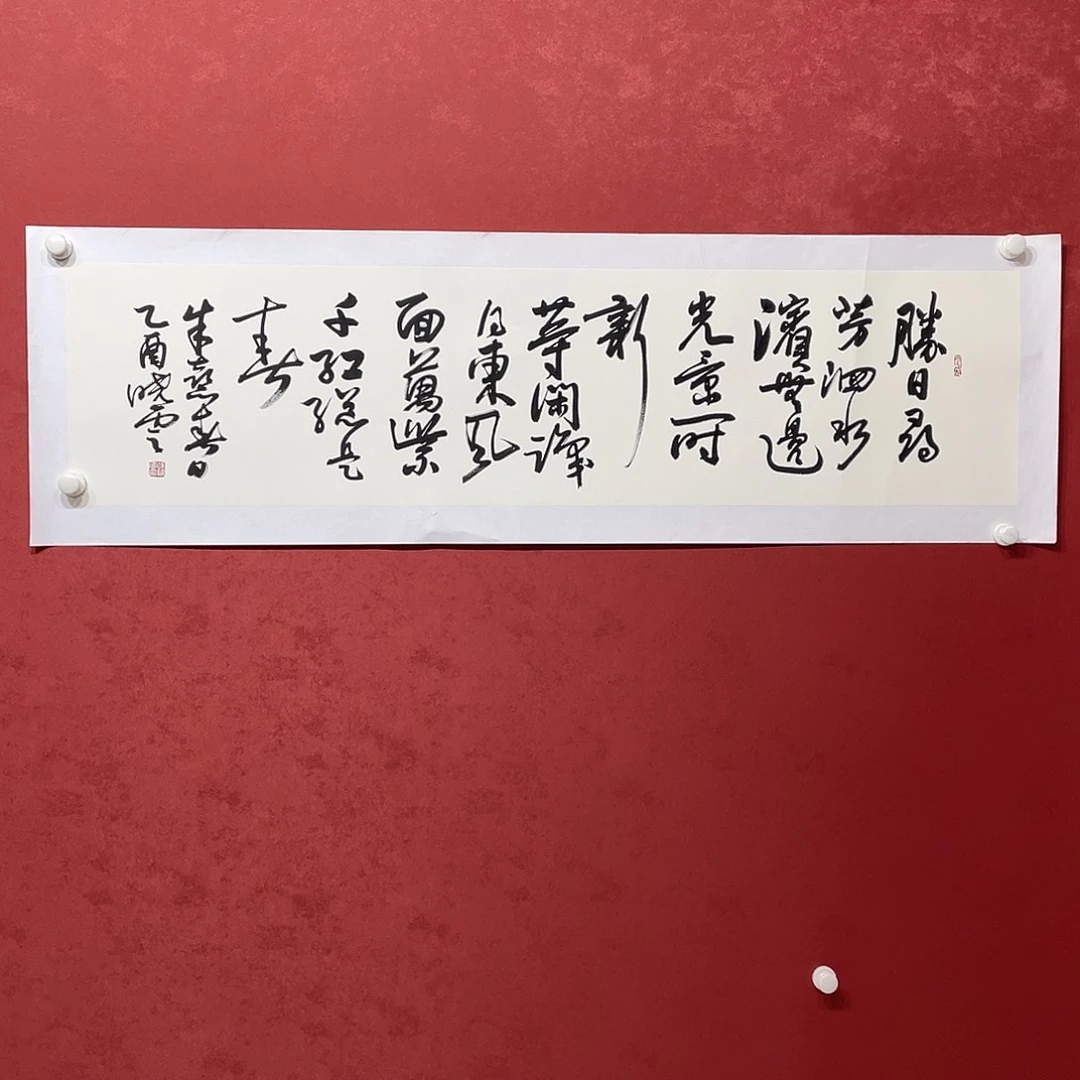 勝日尋
芳泗水
濱無邊
光景一時
新
等閑識
得東風
面萬紫
千紅總是
春
朱熹春日
乙酉晓雲